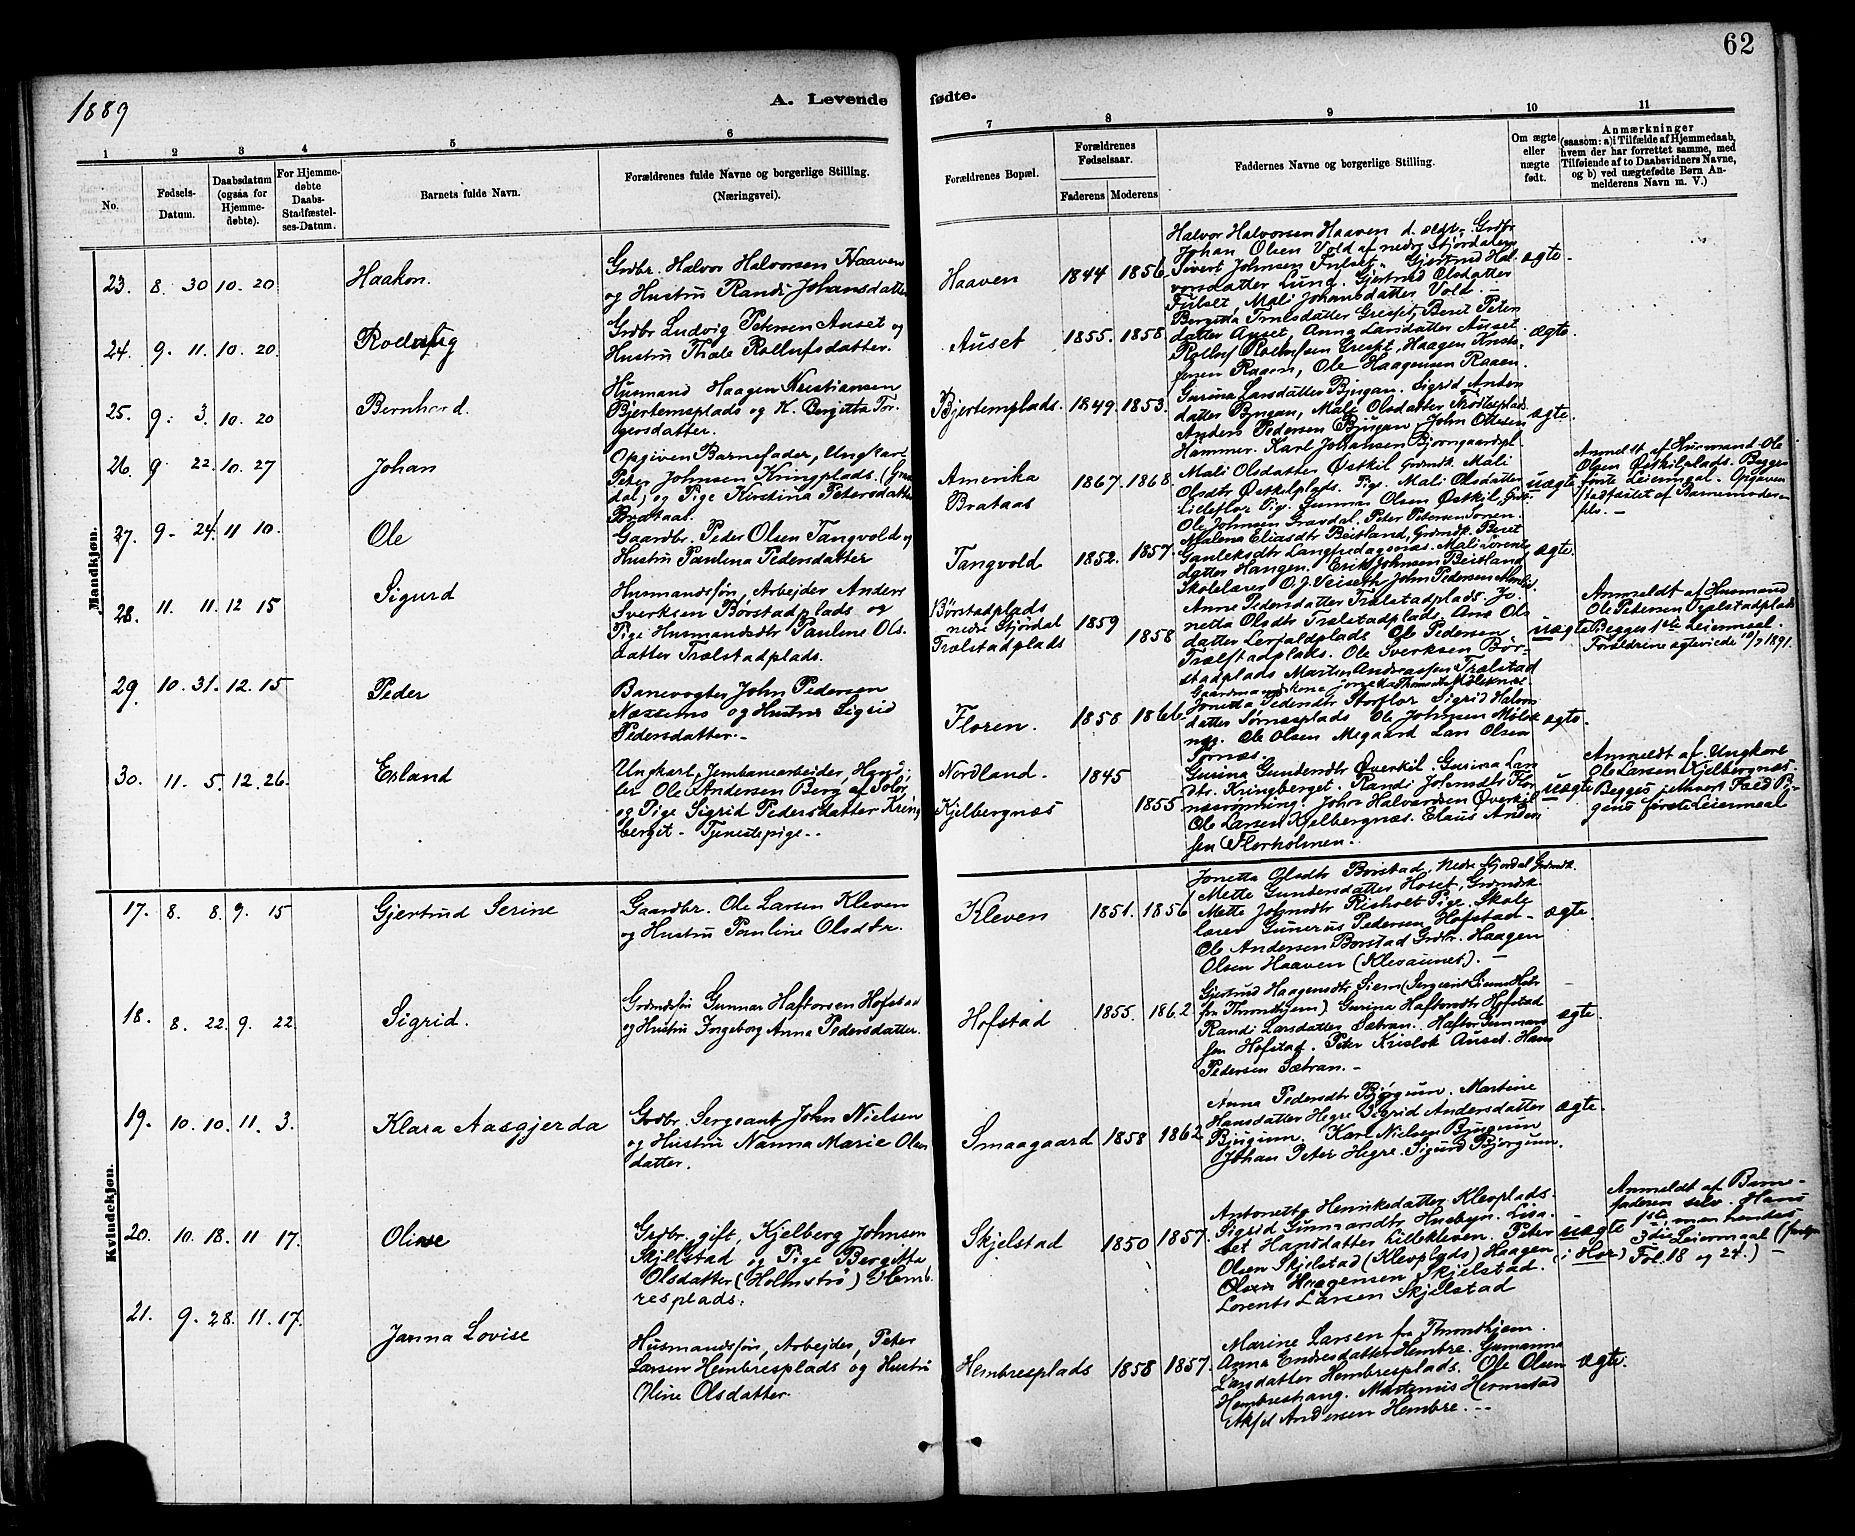 62
1889
A. Levende fødte.
1 2 3 4 5 6 7 8 9 10 11
No.
Fødsels-Datum.
Daabsdatum (ogsaa for Hjemmedøbte).
For Hjemmedøbte Daabs-Stadfæstelses-Datum.
Barnets fulde Navn.
Forældrenes fulde Navne og borgerlige Stilling. (Næringsvei).
Forældrenes Bopæl.
Forældrenes Fødselsaar.
Faderens Moderens
Faddernes Navne og borgerlige Stilling.
Om ægte eller uægte født.
Anmærkninger
(saasom: a) i Tilfælde af Hjemmedaab,
hvem der har forrettet samme, med
Tilføiende af to Daabsvidners Navne,
og b) ved uægtefødte Børn An-
melderens Navn m. V.)
Mandkjøn.
23. 8. 30 10. 20 Haakon.
Grdbr. Halvor Halvorsen Haaven
og Hustru Randi Johansdatter
Haaven 1844 1856
Halvor Halvorsen Haaven d. ældr. Grdbr
Johan Olsen Vold af nedre Stjørdalen
Sivert Johnsen Fulset. Gjertrud Hal-
vorsdatter Lung. Gjertrud Olsdatter
Fulset, Mali Johansdatter Vold.
ægte
24. 9. 11. 10. 20
Grdbr Ludvig Petersen Auset og
Hustru Thale Rollufsdatter.
Auset 1855. 1858
datter Auset, Anna Larsdatter Auset
Raaen, Ole Haagensen Raaen.
ægte.
25. 9. 3. 10. 20 Bernhard.
Husmand Haagen Kristiansen
Bjertemsplads og K. Bergitta Tor-
gersdatter.
Bjertemplads. 1849. 1853.
Gurina Larsdatter Bjugan. Sigrid Anton
datter Bjugan, Mali Olsdatter
Anders Pedersen Bjugan, John Ottesen
Hammer. Karl Johansen Bjorngaardpl.
ægte.
26. 9 22. 10. 27 Johan
Opgiven Barnefader, Ungkarl
Peter Johnsen Kringplads. (Gra
dal) og Pige Kirstina Petersdatter
Brataas.
Amerika
Brataas
1867. 1868.
Mali Olsdatter Østkil Grdmdk. Mali
Olsdtr Østkilplads. Pige. Mali Olsdatter
Lilleflor Pig. Gunnar Olsen Østkil,
Ole Johnsen Gravdal. Peter Petersen
uægte
Anmeldt af Husmand Ole
Olsen Østkilplads. Begges
første Leiermaal. Opgaven
stadfæstet af Barnemoderen
27. 9. 24 11 10. Ole
Gaardbr. Peder Olsen Tangvold og
Hustru Paulina Pedersdatter
Tangvold 1852. 1857.
Malena Eliasdtr Beitland, Grdmdk. Beret
datter Haugen. Erik Johnsen Beitland
Skolelærer O. J. Veiseth John Pedersen
ægte.
28. 11. 11. 12 15 Sigurd
Husmandssøn, Arbejder Anders
Sverksen Borstadplads og
Pige Husmandsdtr Pauline Ols-
datter Trælstadplads.
Børstadplads
nedre Stjørdal
Trælstadplads
1859 1858
Anne Pedersdatter Trælstadplads. Jo-
netta Olsdtr Trælstadplads Ane Ols
datter Lerfaldplads Ole Pedersen
Trælstadplads. Ole Sverksen Bør-
stadplads Martin Andreassen Trælstad
uægte
Anmeldt af Husmand
Ole Pedersen Trælstadplads
Begges 1ste Leiermaal.
Forældrene ægteviede 10/7 1891.
29. 10. 31. 12. 15 Peder
Banevogter John Pedersen
Næssemo og Hustru Sigrid
Pedersdatter.
Floren. 1858 1866
Jonetta Pedersdtr Storflor Sigrid Halvors
datter Sørnæsplads Ole Johnsen
Ole Olsen Megaard Lars Olsen
Sørnæs.
ægte
30. 11. 5. 12. 26. Erland
Ungkarl, Jernbanearbeider, Hand-
ler Ole Andersen Berg af Solør
og Pige Sigrid Pedersdatter Kring
berget - Tjenestepige.
Nordland.
Kjelbergnæs
1845 1855
Gurina Gundersdtr Øverkil. Gurina Lars
dtr. Kringberget. Randi Johnsdtr Flor-
John Halvardsen Øverkil
Ole Larsen Kjelbergnæs. Elaus Ander
sen Florholmen.
uægte
Anmeldt af Ungkarl
Ole Larsen Kjelbergnæs.
Begges i ethvert Fald Pi-
gens første Leiermaal
Kvindekjøn.
17. 8. 8. 9. 15 Gjertrud Serine
Gaardbr. Ole Larsen Kleven
og Hustru Pauline Olsdtr.
Kleven 1851. 1856
Jonetta Olsdtr Borstad, Nedre Stjørdal Grdmdk.
Mette Gundersdatter Hoset, Grdmdk.
Mette Johnsdtr Risholt Pige. Skole
lærer Gunerus Pedersen Hofstad
Ole Andersen Borstad Grdbr. Haagen
Olsen Haaven (Klesaunet).
ægte.
18. 8. 22. 9. 22. Sigrid.
Grdmdssøn Gunnar Haftorsen Hofstad
og Hustru Ingeborg Anna Pedersdatter.
Hofstad 1855. 1862
Gjertrud Haagensdtr Siem (Sergeant Siems Hustr
fra Throndhjem) Gurina Haftorsdtr Hofstad
Randi Larsdatter Sætran. Haftor Gunnars
sen Hofstad. Peter Krislok Auset. Hans
Pedersen Sætran.
ægte.
19. 10. 10. 11. 3. Klara Aasgjerda
Grdbr. Sergeant John Nielsen
og Hustru Nanna Marie Olsen
datter.
Smaagaard 1858 1862
Anna Pedersdtr Bjørgum. Martine
Hansdatter Hegre Sigrid Andersdatter
Bjugum. Karl Nielsen Bjugum
Johan Peter Hegre. Sigurd Bjorgum.
ægte.
20. 10. 18. 11 17. Oline
Grdbr. gift, Kjelberg Johnsen
Skjelstad og Pige Bergitta
Olsdatter (Holmstrø) Hemb-
resplads.
Skjelstad 1850 1857.
Antonetta Henriksdatter Klevplads.
Sigrid Gunnarsdtr Husbyn. Lisa-
bet Hansdatter Lillekleven. Peter
Olsen Skjelstad (Klevplads) Haagen
Olsen Haagensen Skjelstad.
Lorents Larsen Skjelstad
uægte
(i Hor)
Anmeldt af Barne-
faderen selv. Hans
1ste men hendes
3die Leiermaal
Fol. 18 og 24.)
21. 9. 28. 11. 17. Janna Lovise
Husmandssøn, Arbejder, Peter
Larsen Hembresplads og Hustru
Oline Olsdatter.
Hembresplads 1858 1857.
Marine Larsen fra Throndhjem.
Anna Endresdatter Hembre. Gunanna
Larsdatter Hembresplads. Ole Olsen
Hembreshaug. Martinus Hermstad
Aksel Andersen Hembre.
ægte.